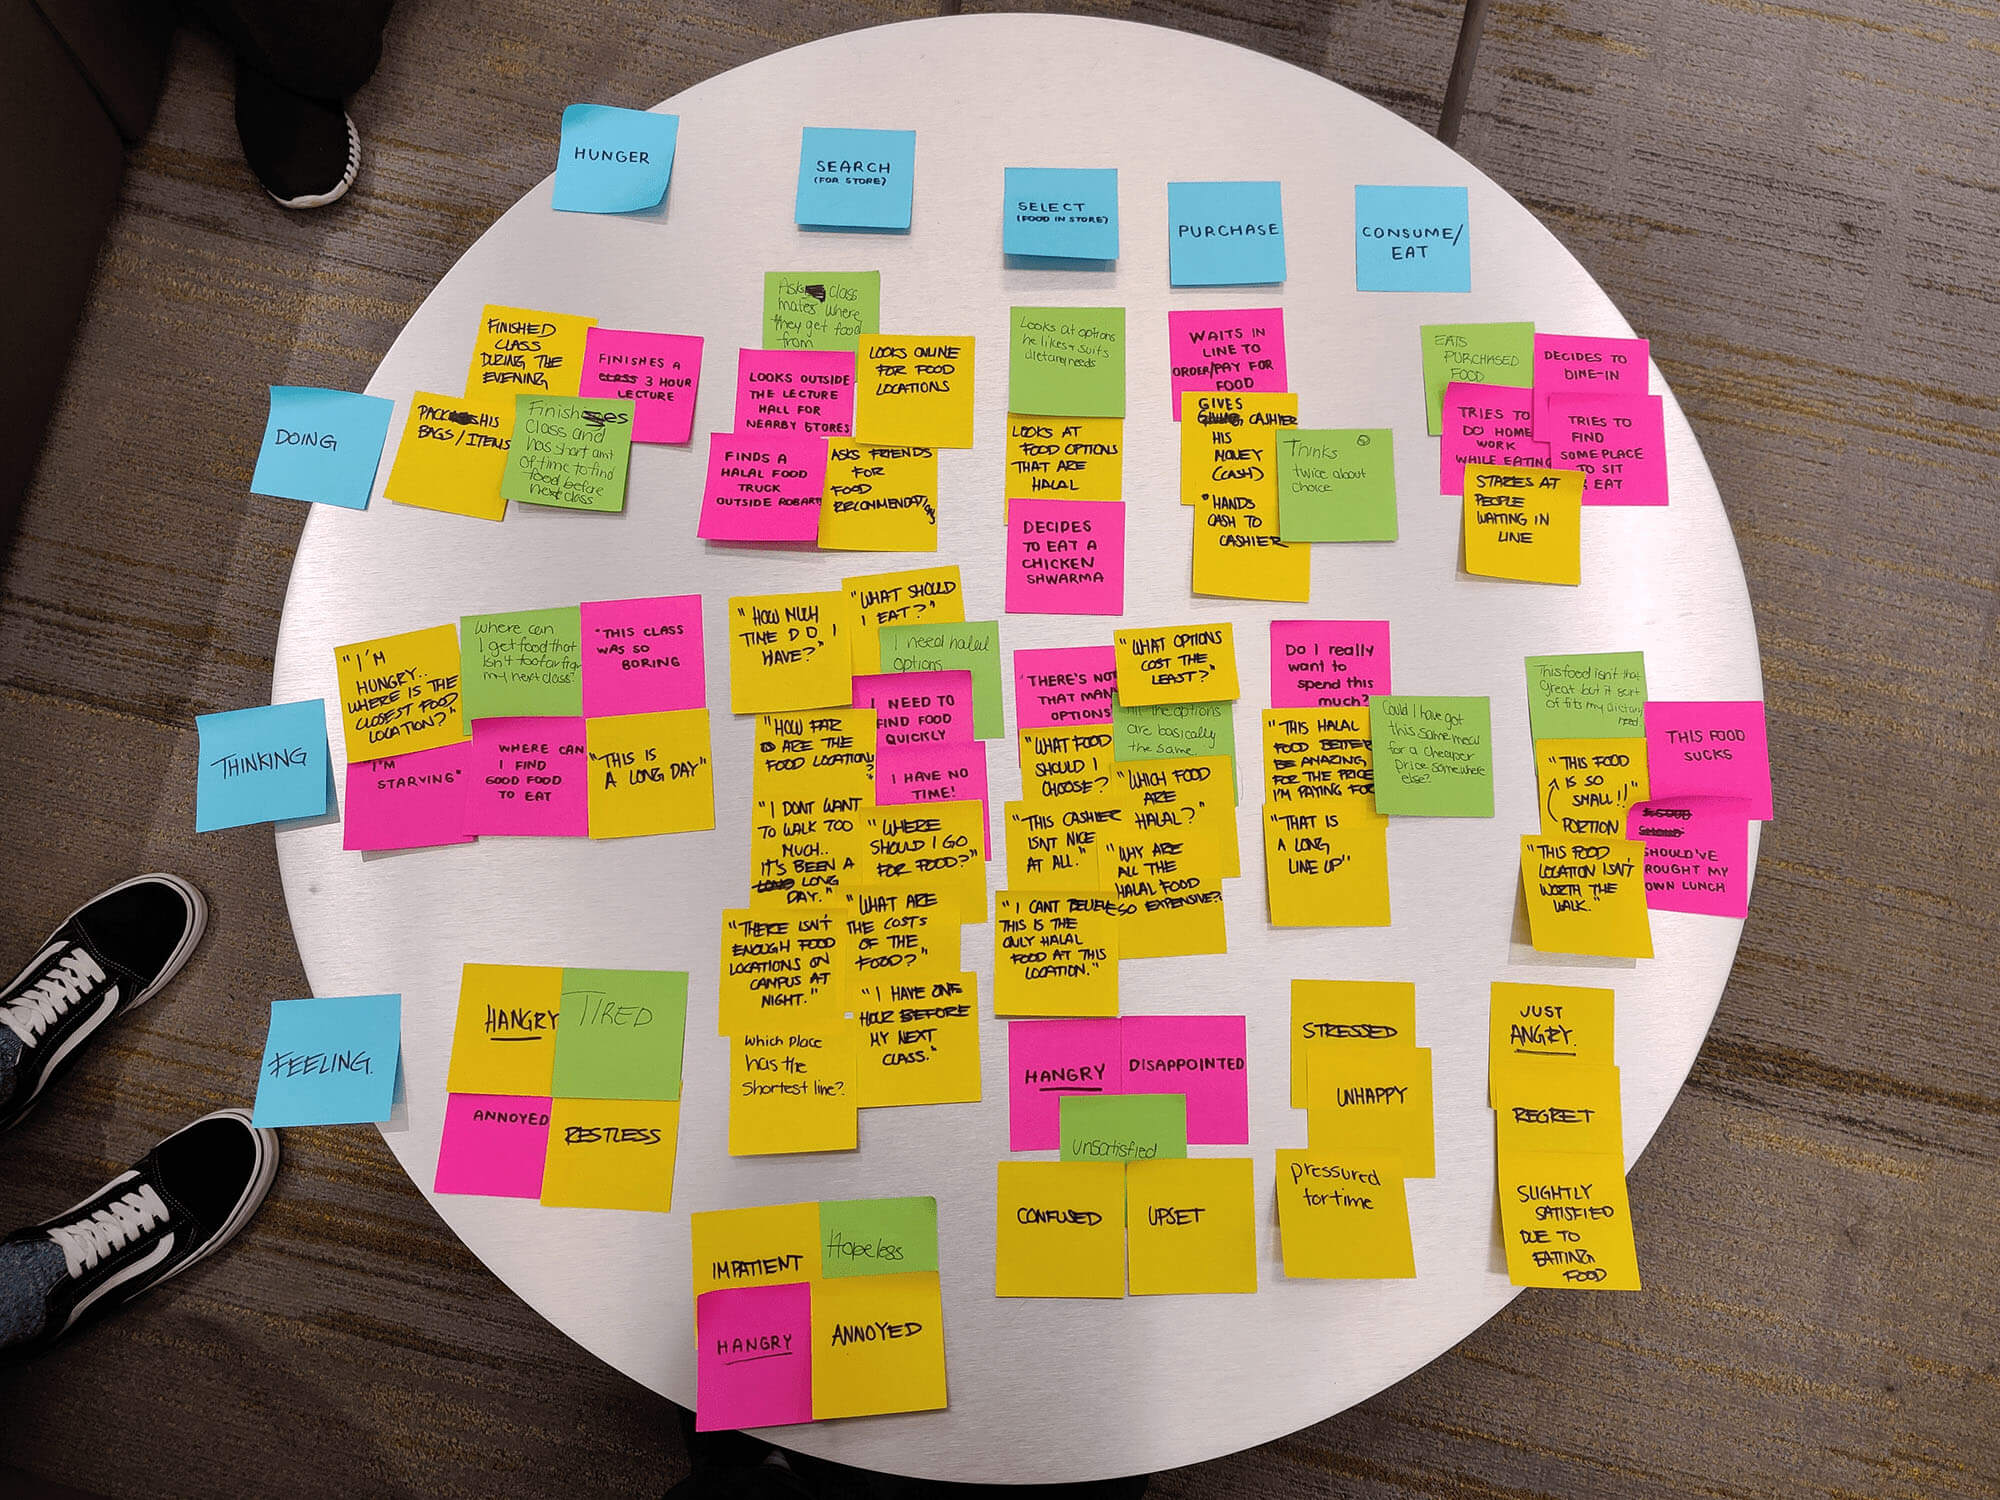 HUNGER
SEARCH
(FOR STORE)
SELECT
(FOOD IN STORE)
PURCHASE
CONSUME/
EAT
DOING
FINISHED
CLASS
DURING THE
EVENING
FINISHES A
CLASS 3 HOUR
LECTURE
PACK HIS
BAGS/ITEMS
Finishes
Class and
has short amt
of time to find
food before
next class
Asks class
mates where
they get food
from
LOOKS OUTSIDE
THE LECTURE
HALL FOR
NEARBY STORES
LOOKS ONLINE
FOR FOOD
LOCATIONS
FINDS A
HALAL FOOD
TRUCK
OUTSIDE ROBARTS
ASKS FRIENDS
FOR
FOOD
RECOMMENDATIONS
Looks at options
he likes + suits
dietary needs
LOOKS AT
FOOD OPTIONS
THAT ARE
HALAL
DECIDES
TO EAT A
CHICKEN
SHWARMA
WAITS IN
LINE TO
ORDER/PAY FOR
FOOD
GIVES
CASHIER
HIS
MONEY
(CASH)
"HANDS
CASH TO
CASHIER
Thinks
twice about
choice
EATS
PURCHASED
FOOD
DECIDES TO
DINE-IN
TRIES TO
DO HOME
WORK
WHILE EATING
TRIES TO
FIND
SOMEPLACE
TO SIT
& EAT
STARES AT
PEOPLE
WAITING IN
LINE
THINKING
"I'M
HUNGRY..
WHERE IS THE
CLOSEST FOOD
LOCATION?"
Where can
I get food that
isn't too far from
my next class?
"THIS CLASS
WAS SO
BORING
"I'M
STARVING"
WHERE CAN
I FIND
GOOD FOOD
TO EAT
"THIS IS
A LONG DAY"
"HOW MUCH
TIME DO I
HAVE?"
"WHAT SHOULD
I EAT?"
I need halal
options
"HOW FAR
ARE THE
FOOD LOCATION?
I NEED TO
FIND FOOD
QUICKLY
I HAVE NO
TIME!
"I DONT WANT
TO WALK TOO
MUCH..
IT'S BEEN A
LONG LONG
DAY."
"WHERE
SHOULD I GO
FOR FOOD?"
"THERE ISN'T
ENOUGH FOOD
LOCATIONS ON
CAMPUS AT
NIGHT."
"WHAT ARE
THE COSTS
OF THE
FOOD?"
Which place
has the
shortest line?
"I HAVE ONE
HOUR BEFORE
MY NEXT
CLASS."
"THERE'S NOT
THAT MANY
OPTIONS"
"WHAT OPTIONS
COST THE
LEAST?"
All the options
are basically
the same.
"WHAT FOOD
SHOULD I
CHOOSE?
"WHICH FOOD
ARE
HALAL?"
"THIS CASHIER
ISNT NICE
AT ALL."
"WHY ARE
ALL THE
HALAL FOOD
SO EXPENSIVE?"
"I CANT BELIEVE
THIS IS THE
ONLY HALAL
FOOD AT THIS
LOCATION."
Do I really
want to
spend this
much?
"THIS HALAL
FOOD BETTER
BE AMAZING
FOR THE PRICE
I'M PAYING FOR
Could I have got
this same meal
for a cheaper
price somewhere
else?
"THAT IS
A LONG
LINE UP"
This food isn't that
great but it sort
of fits my dietary
need.
THIS FOOD
SUCKS
"THIS FOOD
IS SO
SMALL!!"
PORTION
SHOULD'VE
BROUGHT MY
OWN LUNCH
"THIS FOOD
LOCATION ISN'T
WORTH THE
WALK."
FEELING.
HANGRY
TIRED
ANNOYED
RESTLESS
IMPATIENT
Hopeless
HANGRY
ANNOYED
HANGRY
DISAPPOINTED
unsatisfied
CONFUSED
UPSET
STRESSED
UNHAPPY
pressured
for time
JUST
ANGRY.
REGRET
SLIGHTLY
SATISFIED
DUE TO
EATTING
FOOD